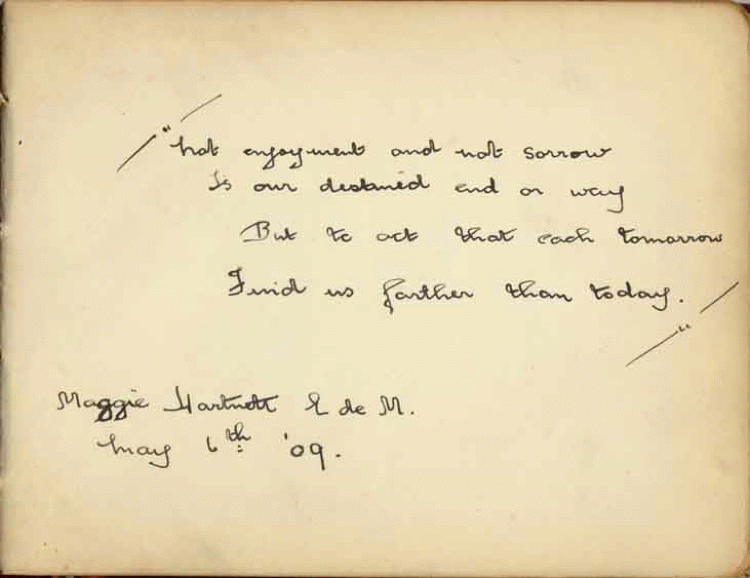 "Not enjoyment and not sorrow
Is our destined end or way
But to act that each tomorrow
Find us farther than today."
Maggie Hartnett E de M.
May 6th '09.